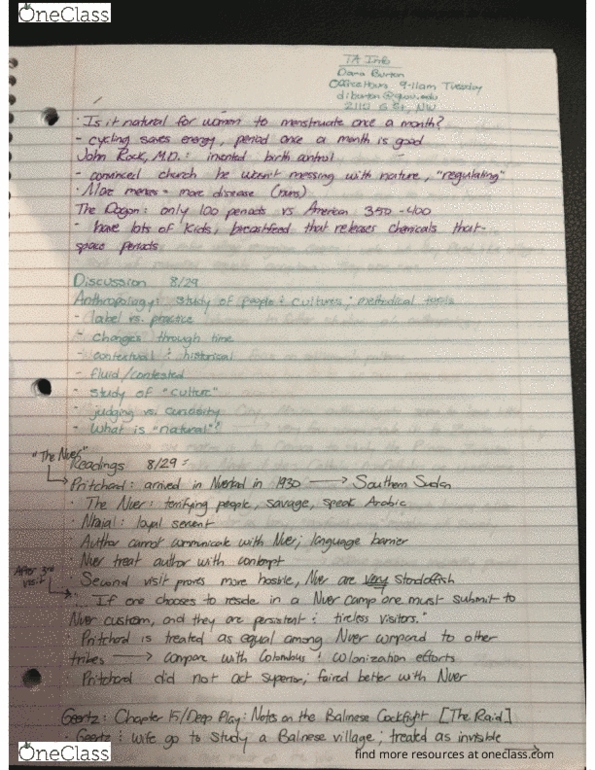 OneClass
TA Info
Dara Burton
Office Hours 9-11am Tuesday
diburton@gwu.edu
2110 G St, NW
· Is it natural for women to menstruate once a month?
- cycling saves energy, period once a month is good
John Rock, M.D.: invented birth control
- convinced church he wasn't messing with nature, "regulating"
· More menses = more disease (nuns)
The Dogon: only 100 periods vs American 350-400
- have lots of kids, breastfeed that releases chemicals that
space periods
Discussion 8/29
Anthropology: study of people & cultures; methodical
- label vs. practice
- changes through time
- contextual & historical
- fluid/contested
- study of "culture"
- judging vs. curiosity
- What is "natural"?
"The Nuer"
Readings 8/29:
Pritchard: arrived in Nuerland in 1930 → Southern Sudan
· The Nuer: terrifying people, savage, speak Arabic
· loyal servant
· Author cannot communicate with Nuer; language barrier
· Nuer treat author with contempt
After 3rd visit
· Second visit proves more hostile, Nuer are very standoffish
"... If one chooses to reside in a Nuer camp one must submit to
Nuer custom, and they are persistent & tireless visitors."
· Pritchard is treated as equal among Nuer compared to other
tribes → compare with Columbus & colonization efforts
· Pritchard did not act superior; faired better with Nuer
Geertz: Chapter 15/Deep Play: Notes on the Balinese Cockfight [The Raid]
· Geertz & wife go to study a Balinese village; treated as invisible
OneClass
find more resources at oneclass.com